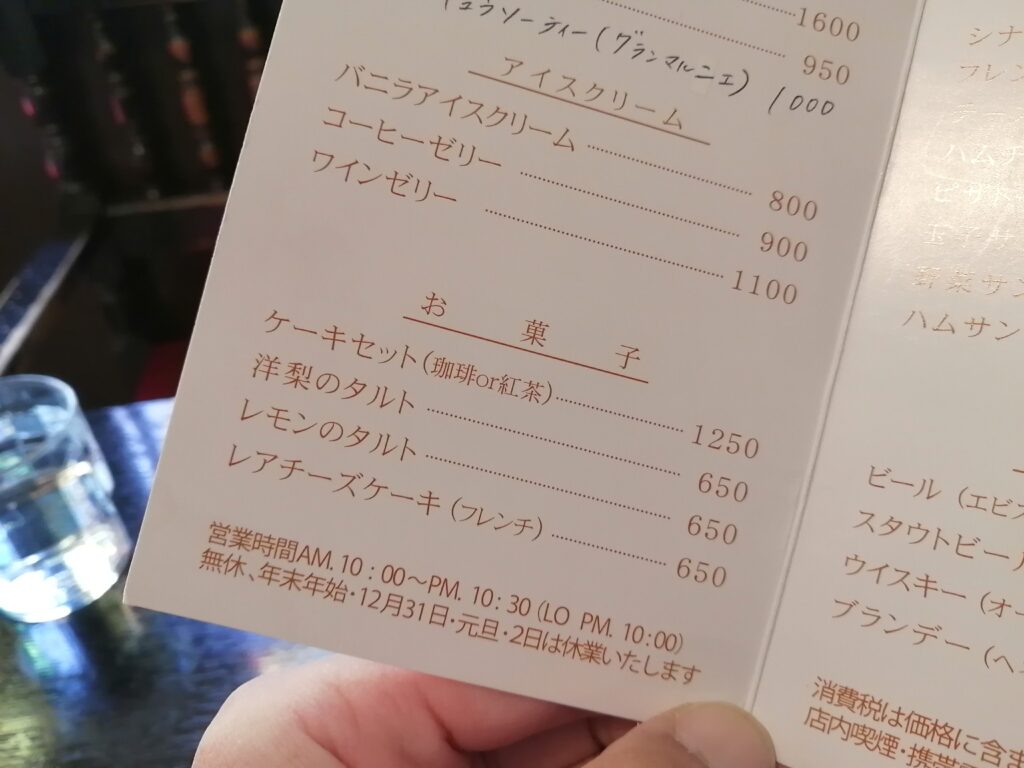 1600
950
キュラソーティー(グランマルニェ) 1000
アイスクリーム
バニラアイスクリーム 800
コーヒーゼリー 900
ワインゼリー 1100
お菓子
ケーキセット(珈琲or紅茶) 1250
洋梨のタルト 650
レモンのタルト 650
レアチーズケーキ(フレンチ) 650
営業時間AM. 10:00〜PM. 10:30 (LO PM. 10:00)
無休、年末年始・12月31日・元旦・2日は休業いたします
シナ
フレン
ハムチ
野菜サン
ハムサン
ビール(エビス
スタウトビール
ウイスキー(オー
ブランデー(ヘ
消費税は価格に含ま
店内喫煙・携帯